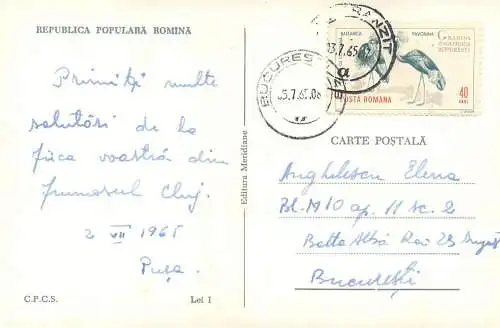 REPUBLICA POPULARĂ ROMINĂ
Primiți multe
salutări de la
fiica voastră din
frumosul Cluj.
2 VII 1965
Pușa.
C.P.C.S.
Lei 1
Editura Meridiane
BUCUREȘTI
5.7.65.08
TRANZIT
03.7.65
BALEARICA
PAVONINA
GRĂDINA
ZOOLOGICĂ
BUCUREȘTI
POSTA ROMANA
40
BANI
CARTE POȘTALĂ
Anghelescu Elena
Bl. M10 ap. 11 sc. 2
Balta Albă Rai 23 August
București